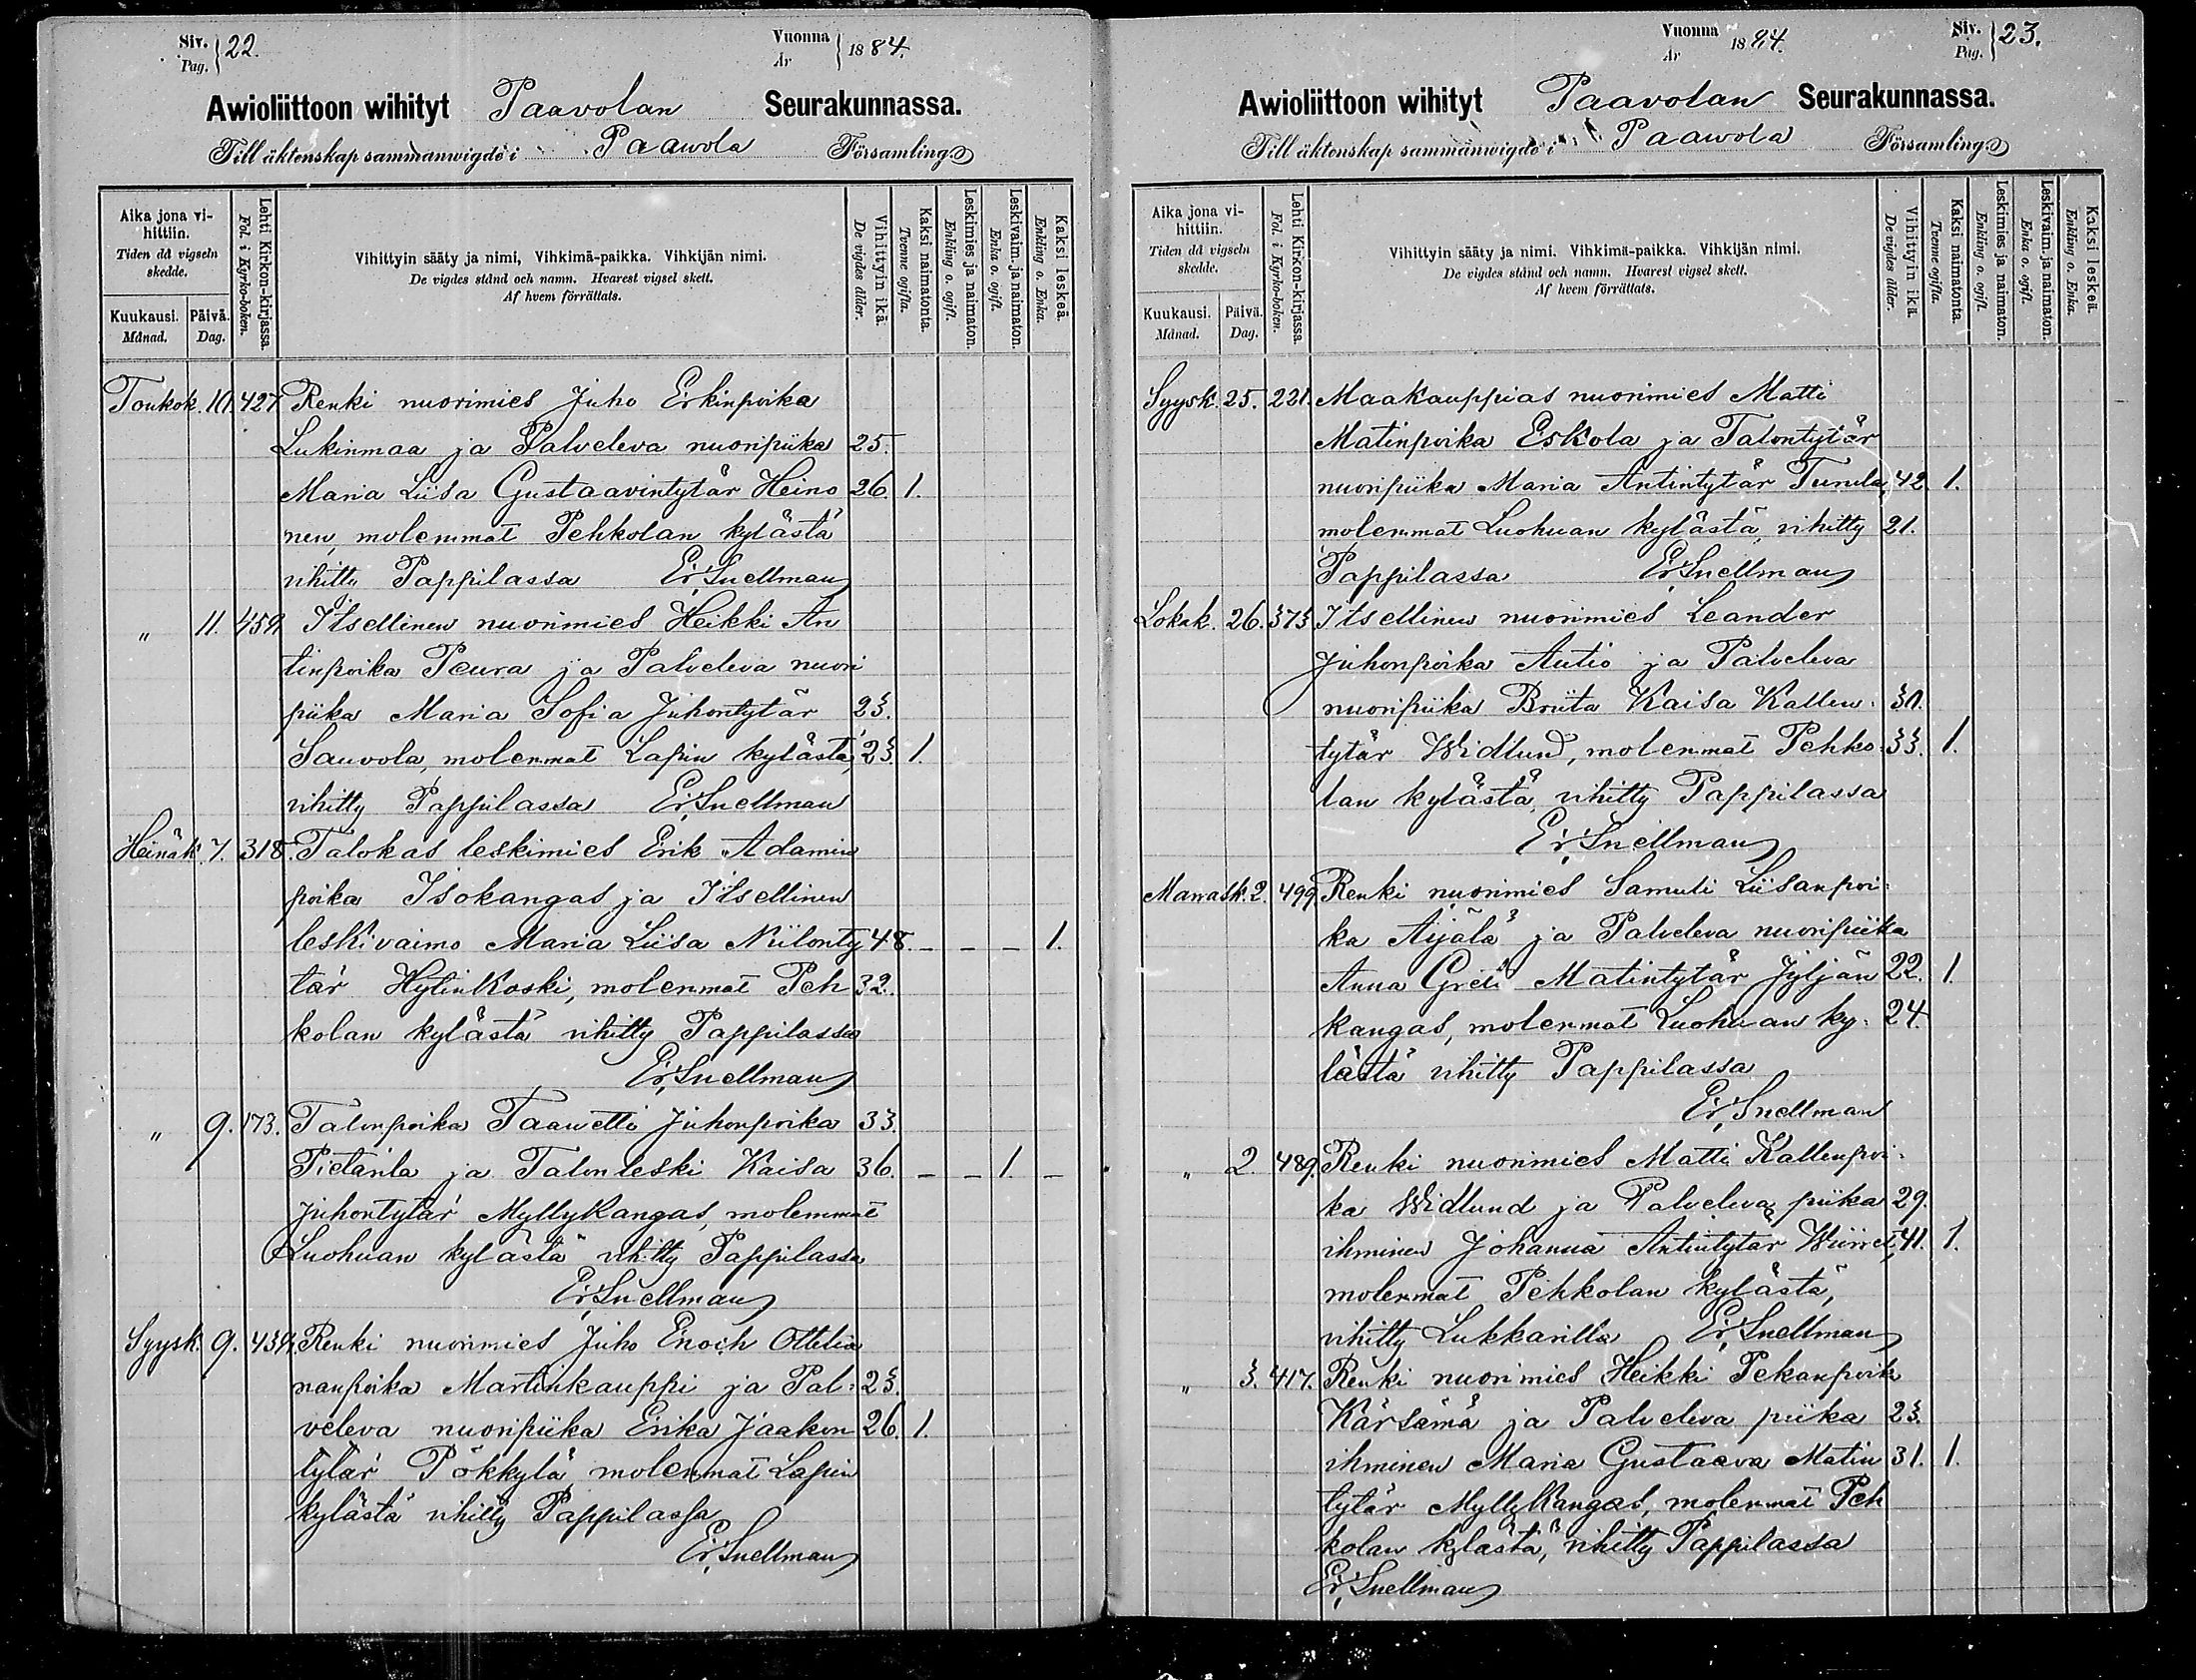 Siv. Pag. 22.
Vuonna År 1884.
Awioliittoon wihityt Paavolan Seurakunnassa.
Till äktenskap sammanwigde i Paawola Församling
Aika jona vihittiin.
Tiden då vigseln skedde.
Kuukausi. Månad.
Päivä. Dag.
Lehti Kirkon-kirjassa.
Fol. i Kyrko-boken.
Vihittyin sääty ja nimi, Vihkimä-paikka. Vihkijän nimi.
De vigdes stånd och namn. Hvarest vigsel skett.
Af hvem förrättats.
Vihittyin ikä.
De vigdes ålder.
Kaksi naimatonta.
Tvenne ogifta.
Leskimies ja naimaton.
Enkling o. ogift.
Leskivaim. ja naimaton.
Enka o. ogift.
Kaksi leskeä.
Enkling o. Enka.
Toukok. 10. 427 Renki nuorimies Juho Erkinpoika
Lukinmaa ja Palveleva nuoripiika 25.
Maria Liisa Gustaavintytär Heino 26. 1.
nen, molemmat Pehkolan kylästä
vihitty Pappilassa Er. Snellman
" 11. 459 Itsellinen nuorimies Heikki An
tinpoika Peura ja Palveleva nuori
piika Maria Sofia Juhontytär 23.
Sauvola, molemmat Lapin kylästä, 23. 1.
vihitty Pappilassa Er. Snellman
Heinäk. 7. 318. Talokas leskimies Erik Adamin
poika Isokangas ja Itsellinen
leskivaimo Maria Liisa Niilonty 48. – – – 1.
tär Hylinkoski, molemmat Peh 32.
kolan kylästä vihitty Pappilassa
Er. Snellman
" 9. 173. Talonpoika Taawetti Juhonpoika 33.
Pietarila ja Talonleski Kaisa 36. – – 1. –
Juhontytär Myllykangas, molemmat
Luohuan kylästä vihitty Pappilassa
Er. Snellman
Syysk. 9. 434. Renki nuorimies Juho Enoch Ottelia
nanpoika Martinkauppi ja Pal- 23.
veleva nuoripiika Erika Jaakon 26. 1.
tytär Pökkylä molemmat Lapin
kylästä vihitty Pappilassa
Er. Snellman
Vuonna År 1884.
Siv. Pag. 23.
Awioliittoon wihityt Paavolan Seurakunnassa.
Till äktenskap sammanwigde i Paawola Församling
Aika jona vihittiin.
Tiden då vigseln skedde.
Kuukausi. Månad.
Päivä. Dag.
Lehti Kirkon-kirjassa.
Fol. i Kyrko-boken.
Vihittyin sääty ja nimi. Vihkimä-paikka. Vihkijän nimi.
De vigdes stånd och namn. Hvarest vigsel skett.
Af hvem förrättats.
Vihittyin ikä.
De vigdes ålder.
Kaksi naimatonta.
Tvenne ogifta.
Leskimies ja naimaton.
Enkling o. ogift.
Leskivaim. ja naimaton.
Enka o. ogift.
Kaksi leskeä.
Enkling o. Enka.
Syysk. 25. 221. Maakauppias nuorimies Matti
Matinpoika Eskola ja Talontytär
nuoripiika Maria Antintytär Turula, 42. 1.
molemmat Luohuan kylästä, vihitty 21.
Pappilassa Er. Snellman
Lokak. 26. 373 Itsellinen nuorimies Leander
Juhonpoika Autio ja Palveleva
nuoripiika Briita Kaisa Kallen- 30.
tytär Widlund, molemmat Pehko- 33. 1.
lan kylästä, vihitty Pappilassa
Er. Snellman
Marrask. 2. 499. Renki nuorimies Samuli Liisanpoi-
ka Äijälä ja Palveleva nuoripiika
Anna Greta Matintytär Jyljän 22. 1.
kangas, molemmat Luohuan ky- 24.
lästä vihitty Pappilassa
Er. Snellman
" 2. 489. Renki nuorimies Matti Kallenpoi-
ka Widlund ja Palveleva piika 29.
ihminen Johanna Antintytär Wiiret, 41. 1.
molemmat Pehkolan kylästä,
vihitty Lukkarilla Er. Snellman
" 3. 417. Renki nuorimies Heikki Pekanpoik
Kärsämä ja Palveleva piika 23.
ihminen Maria Gustaava Matin 31. 1.
tytär Myllykangas, molemmat Peh
kolan kylästä, vihitty Pappilassa
Er. Snellman